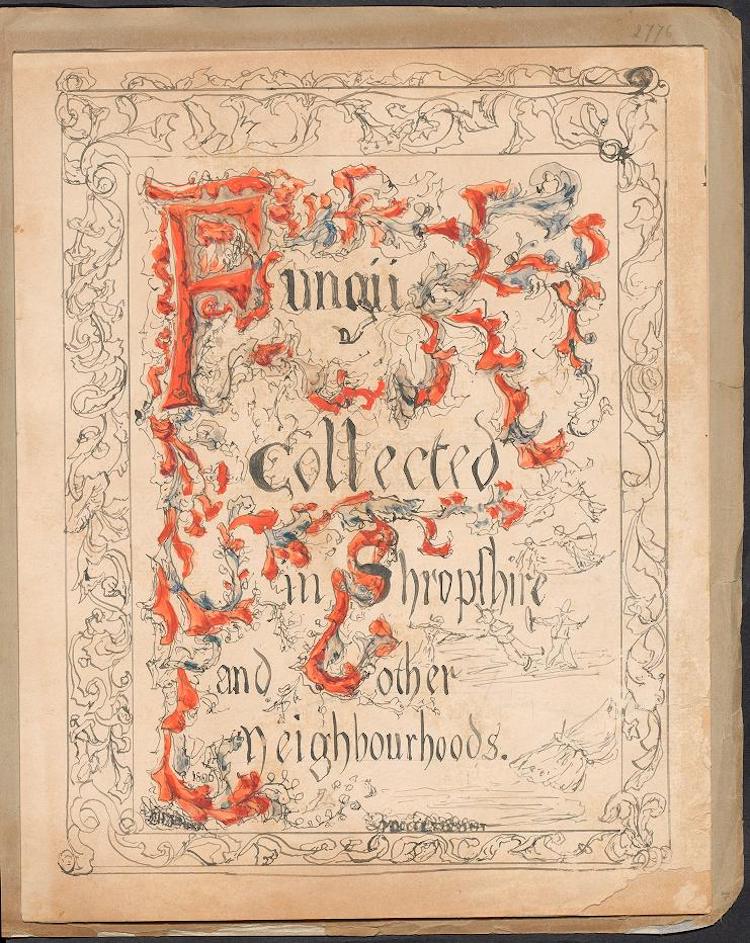 2776
Fungii
Collected
in Shropſhire
and other
neighbourhoods.